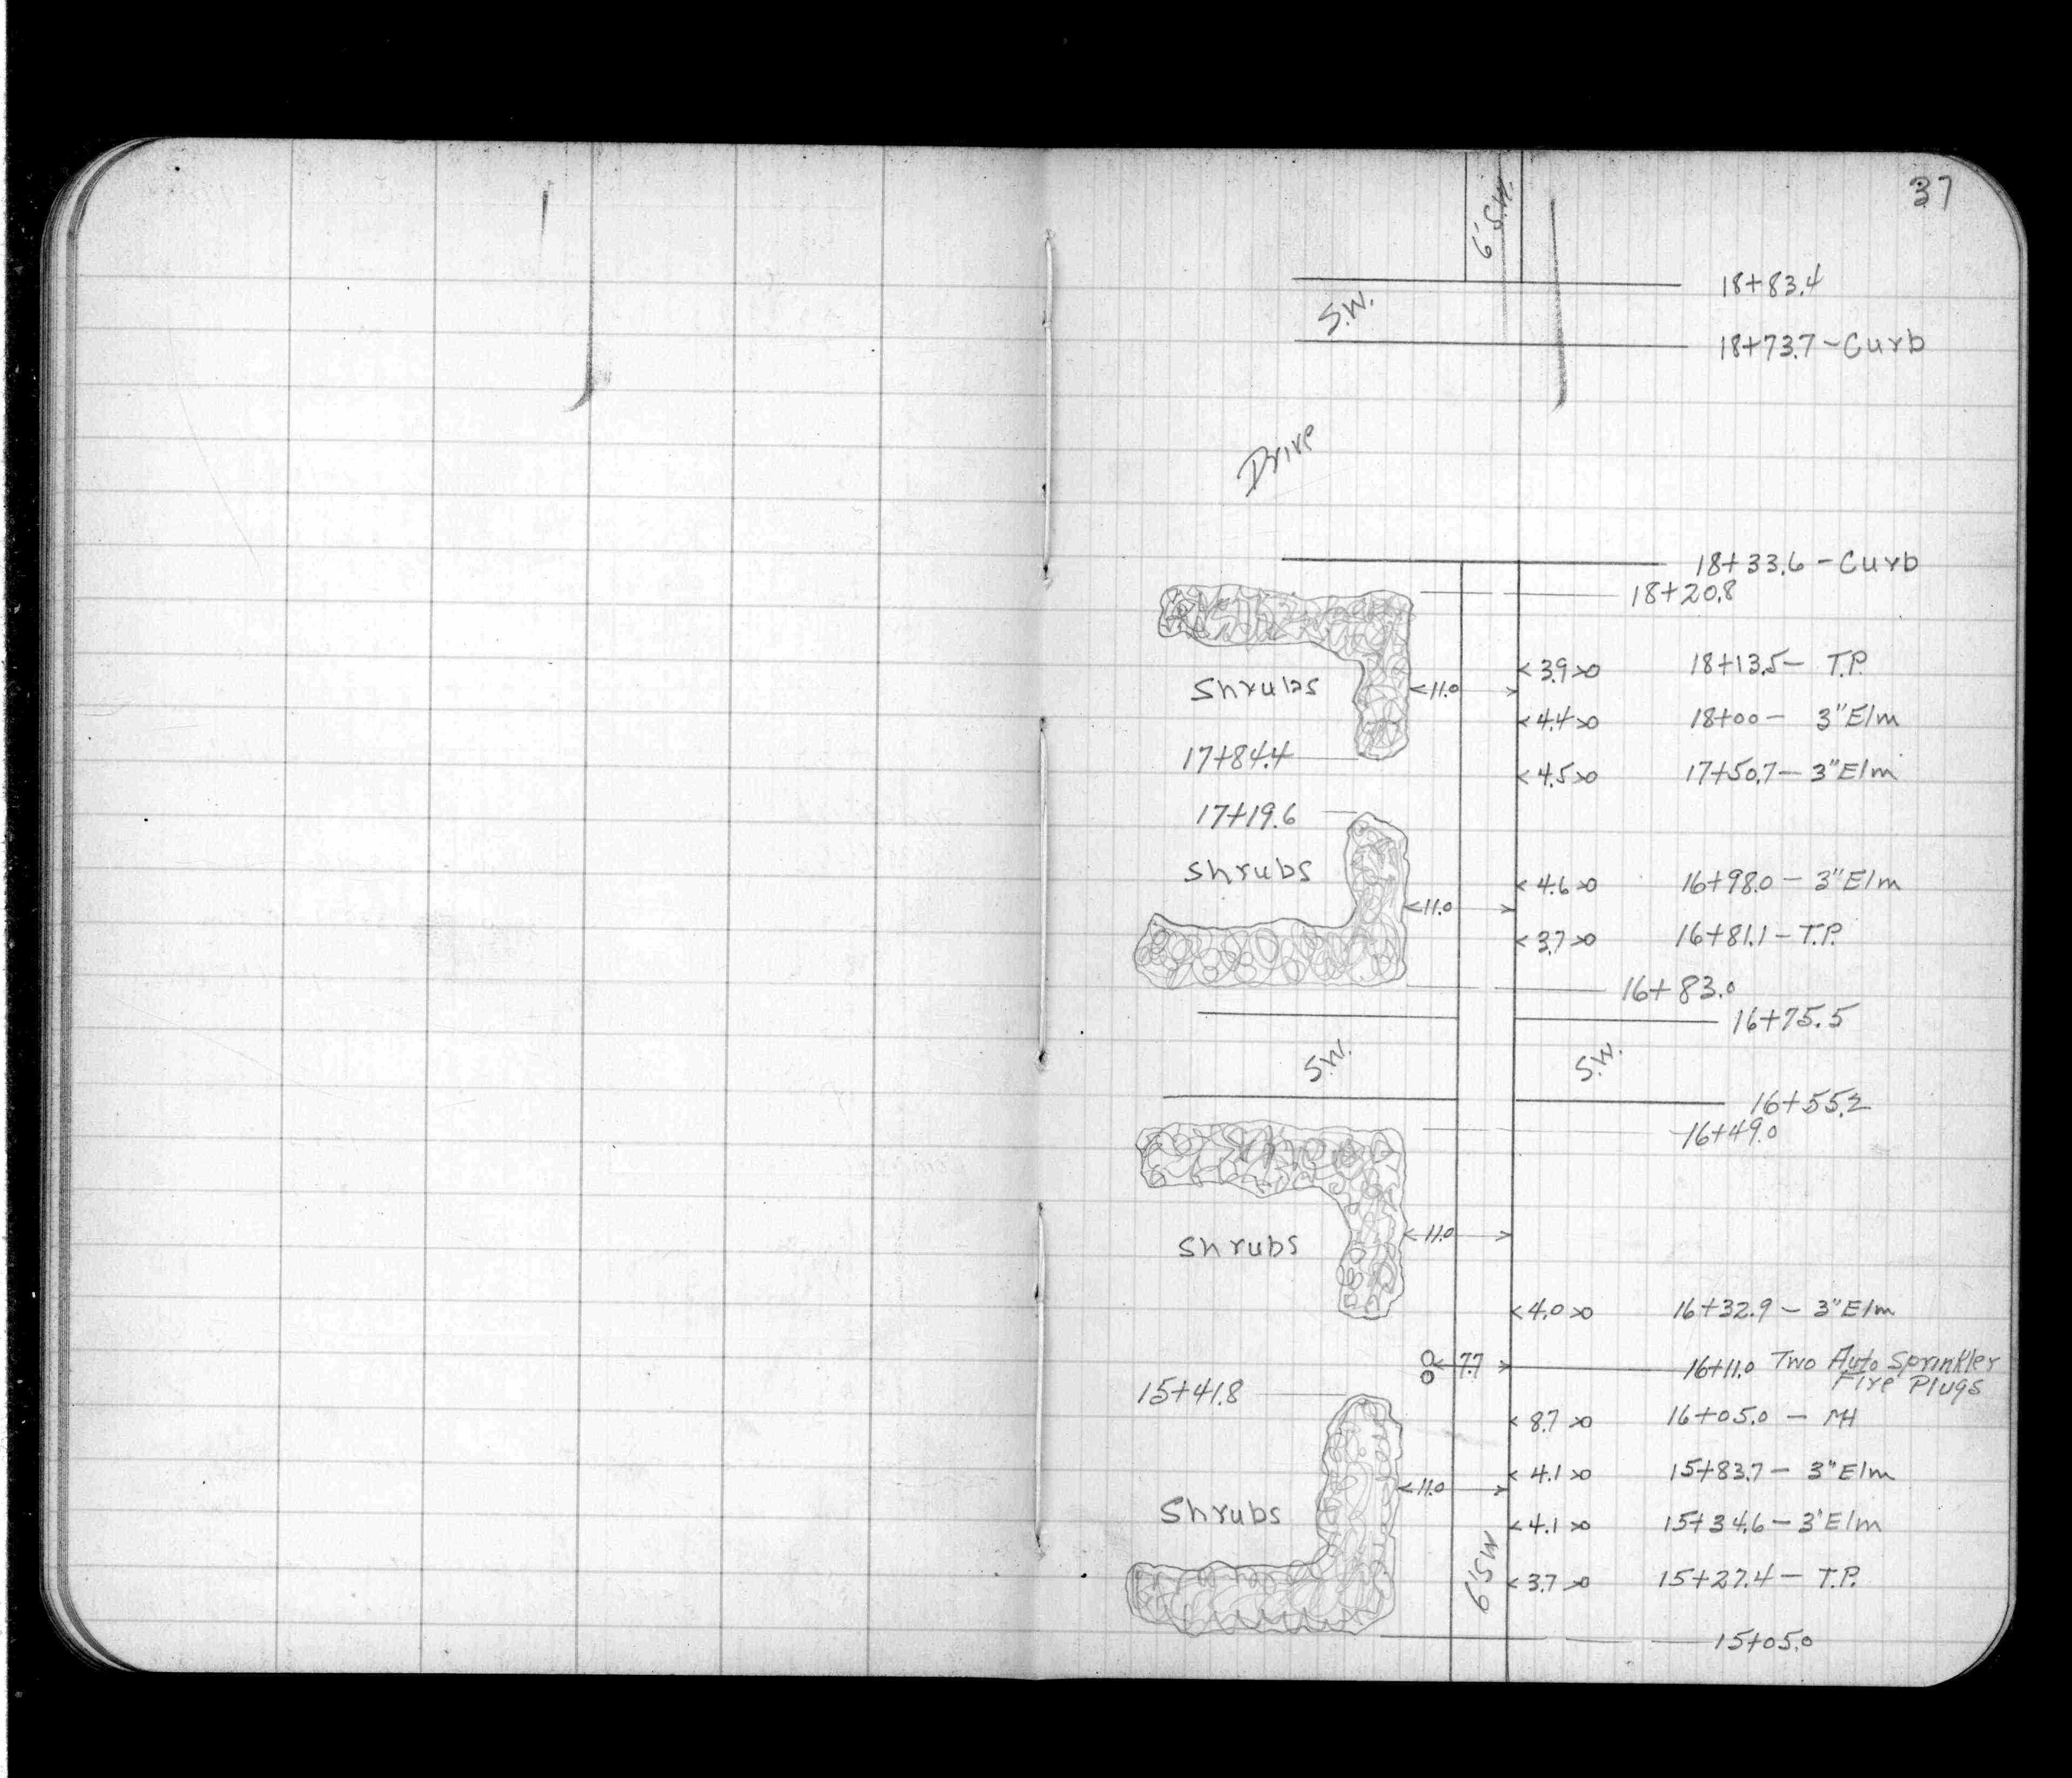 37
6' S.W.
18+83.4
S.W.
18+73.7 - Curb
Drive
18+33.6 - Curb
18+20.8
<3.9>o 18+13.5 - T.P.
Shrubs <11.0>
<4.4>o 18+00 - 3" Elm
17+84.4
<4.5>o 17+50.7 - 3" Elm
17+19.6
Shrubs
<4.6>o 16+98.0 - 3" Elm
<11.0>
<3.7>o 16+81.1 - T.P.
16+83.0
16+75.5
S.W. S.W.
16+55.2
16+49.0
Shrubs <11.0>
<4.0>o 16+32.9 - 3" Elm
<7.7> 16+11.0 Two Auto Sprinkler
Fire Plugs
15+41.8
<8.7>o 16+05.0 - MH
<4.1>o 15+83.7 - 3" Elm
<11.0>
Shrubs
<4.1>o 15+34.6 - 3' Elm
6' SW
<3.7>o 15+27.4 - T.P.
15+05.0